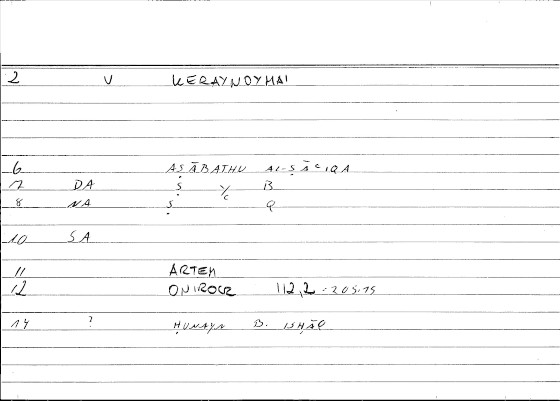 2 V KERAYNOYMAI
6 AṢĀBATHU AL-ṢĀʿIQA
7 DA Ṣ Y/C B
8 NA Ṣ Q
10 SA
11 ARTEM
12 ONIROCR 112,2 - 205.15
14 ? ḤUNAYN B. ISḤĀQ